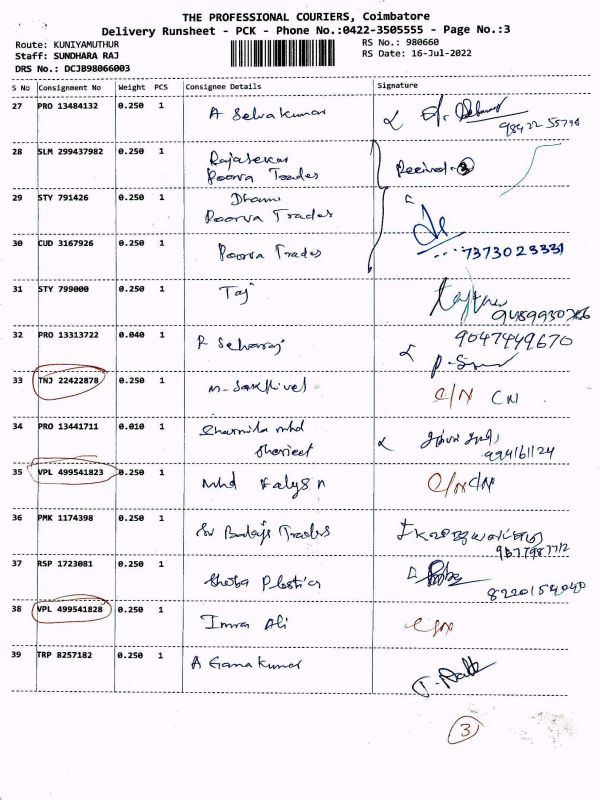 THE PROFESSIONAL COURIERS, Coimbatore
Delivery Runsheet - PCK - Phone No.:0422-3505555 - Page No.:3
Route: KUNIYAMUTHUR RS No.: 980660
Staff: SUNDHARA RAJ RS Date: 16-Jul-2022
DRS No.: DCJB98066003
S No Consignment No Weight PCS Consignee Details Signature
27 PRO 13484132 0.250 1 A Selvakumar
28 SLM 299437982 0.250 1 Rajasekar
Poorva Traders Received-3
29 STY 791426 0.250 1 Dhanu
Poorva Traders
30 CUD 3167926 0.250 1 Poorva Trades 7373023331
31 STY 799000 0.250 1 Taj
32 PRO 13313722 0.040 1 P Selvaraj 9047449670
33 TNJ 22422878 0.250 1 M-Sakthivel C/N CN
34 PRO 13441711 0.010 1 Sharmila mhd
Sherieef 994161124
35 VPL 499541823 0.250 1 Mhd C/N C/N
36 PMK 1174398 0.250 1 Sri Balaji Traders
37 RSP 1723081 0.250 1 Shoba Plastics
38 VPL 499541828 0.250 1 Imran Ali C/N
39 TRP 8257182 0.250 1 A Gana Kumar
3